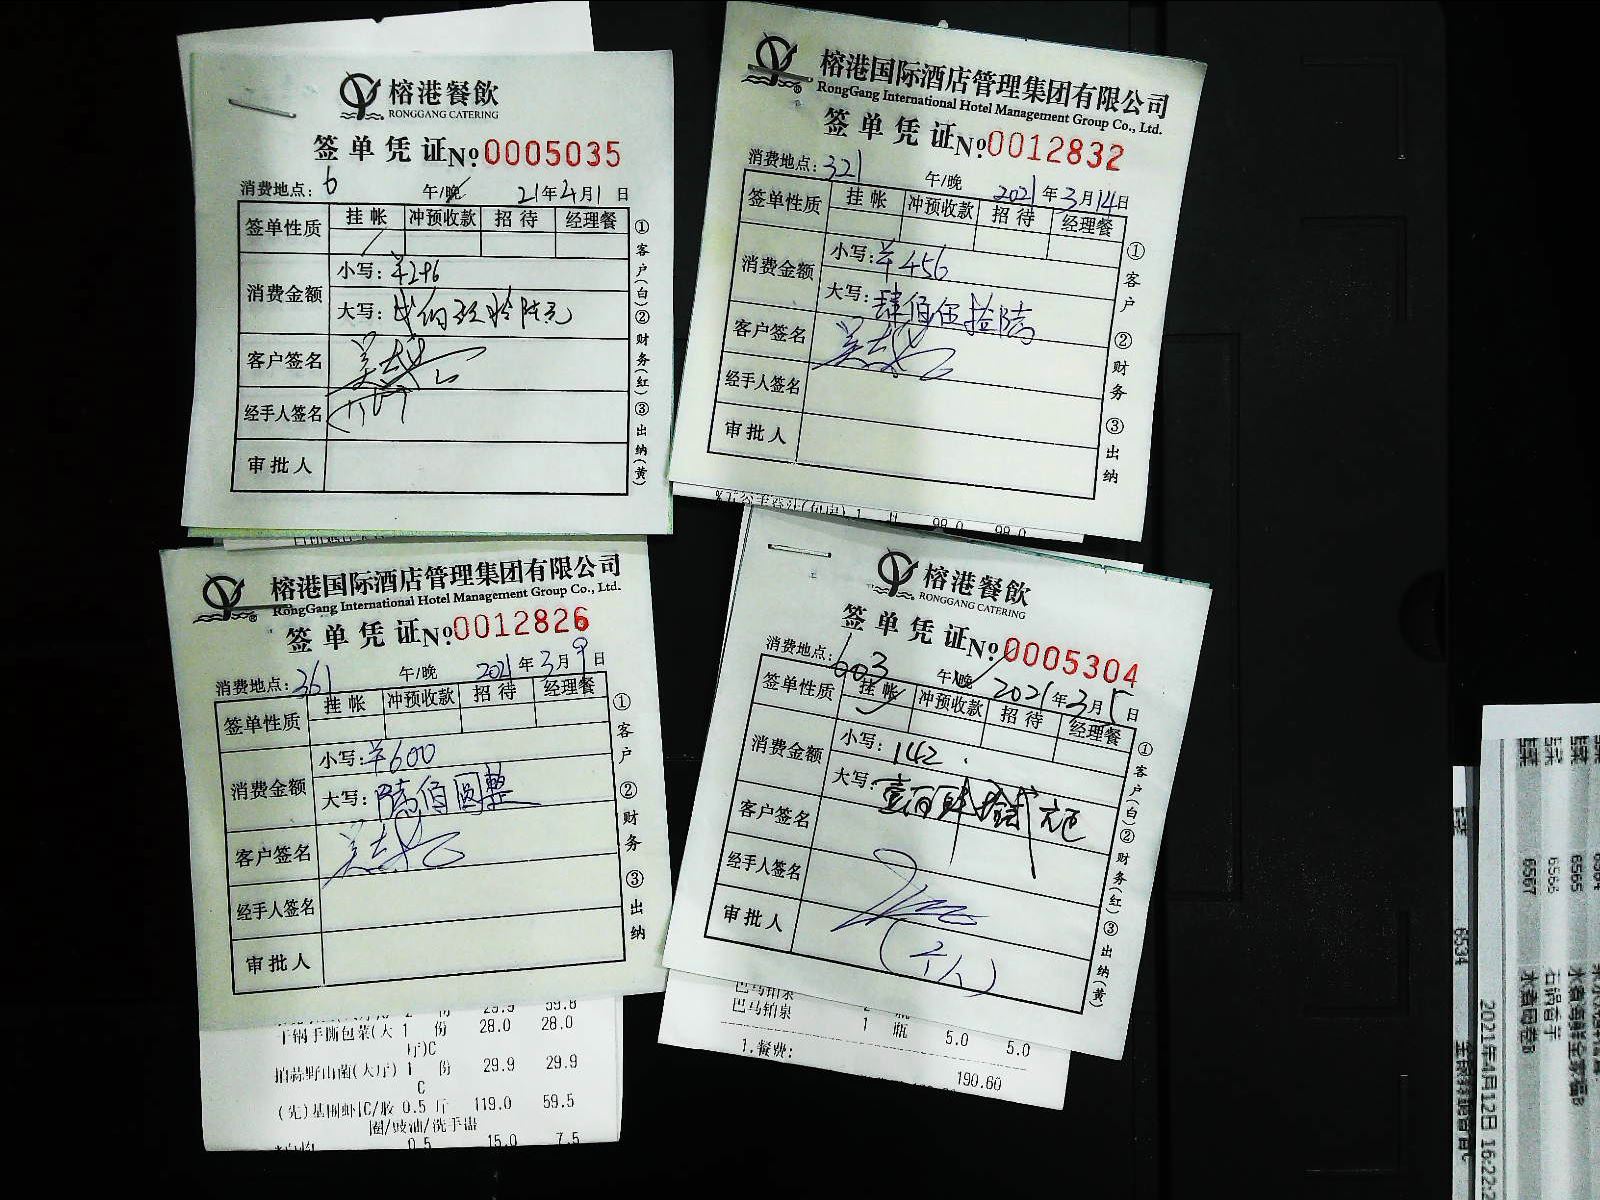 榕港餐飲
RONGGANG CATERING
签单凭证 № 0005035
消费地点：6 午/晚 21年4月1日
签单性质 挂帐 冲预收款 招待 经理餐
消费金额 小写：¥296
大写：贰佰玖拾陆元
客户签名
经手人签名
审批人
①客户(白)②财务(红)③出纳(黄)
榕港国际酒店管理集团有限公司
RongGang International Hotel Management Group Co., Ltd.
签单凭证 № 0012832
消费地点：321 午/晚 2021年3月14日
签单性质 挂帐 冲预收款 招待 经理餐
消费金额 小写：¥456
大写：肆佰伍拾陆
客户签名
经手人签名
审批人
①客户 ②财务 ③出纳
1 99.0 99.0
榕港国际酒店管理集团有限公司
RongGang International Hotel Management Group Co., Ltd.
签单凭证 № 0012826
消费地点：361 午/晚 2021年3月9日
签单性质 挂帐 冲预收款 招待 经理餐
消费金额 小写：¥600
大写：陆佰圆整
客户签名
经手人签名
审批人
①客户 ②财务 ③出纳
29.9 59.8
干锅手撕包菜(大 1 份 28.0 28.0
厅)C
拍蒜野山菌(大厅) 1 份 29.9 29.9
C
(先)基围虾C/胶 0.5 斤 119.0 59.5
圈/豉油/洗手盅
0.5 15.0 7.5
榕港餐飲
RONGGANG CATERING
签单凭证 № 0005304
消费地点：603 午/晚 2021年3月5日
签单性质 挂帐 冲预收款 招待 经理餐
消费金额 小写：142.
大写：壹佰肆拾贰元
客户签名
经手人签名
审批人
(个人)
①客户(白)②财务(红)③出纳(黄)
巴马铂泉 2 瓶
巴马铂泉 1 瓶 5.0 5.0
1.餐费:
190.60
6534
6565
6566 石锅香芋
6567
2021年4月12日 16:22: